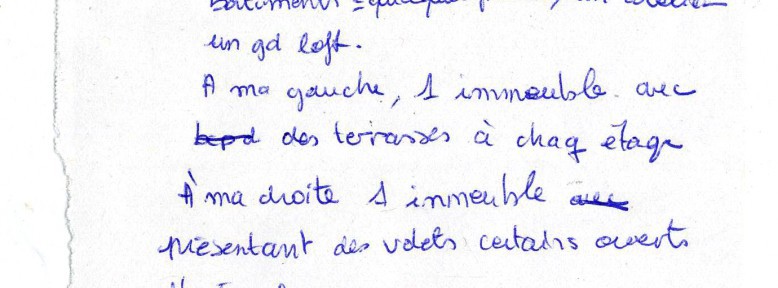 bâtiments
un gd loft.
A ma gauche, 1 immeuble avec
des terrasses à chaq étage
À ma droite 1 immeuble avec
présentant des volets certains ouverts